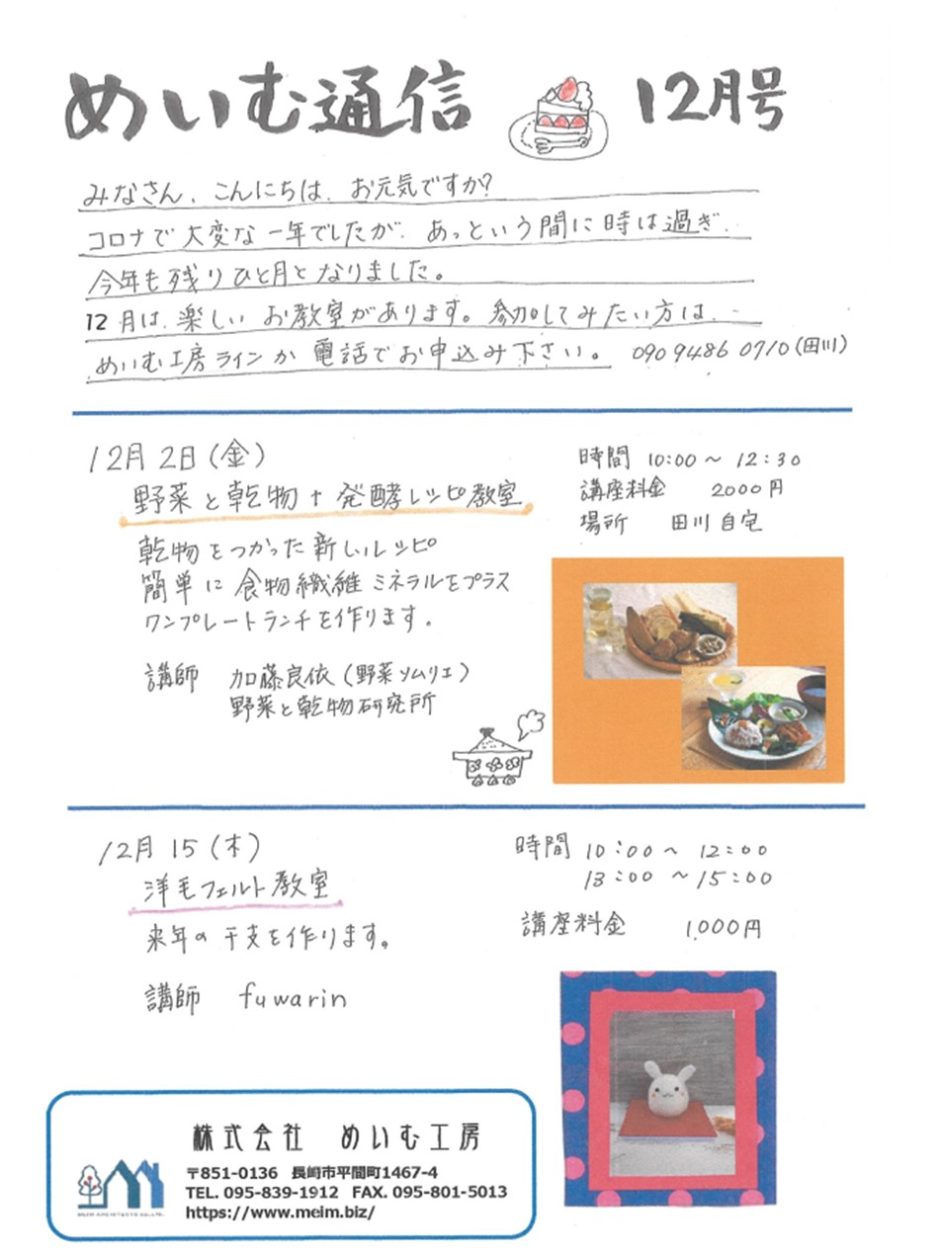 めいむ通信 12月号
みなさん、こんにちは、お元気ですか?
コロナで大変な一年でしたが、あっという間に時は過ぎ、
今年も残りひと月となりました。
12月は、楽しいお教室があります。参加してみたい方は、
めいむ工房ラインか電話でお申込み下さい。 090 9486 0710 (田川)
12月2日(金)
野菜と乾物+発酵レシピ教室
時間 10:00~12:30
講座料金 2000円
場所 田川自宅
乾物をつかった新しいレシピ
簡単に食物繊維ミネラルをプラス
ワンプレートランチを作ります。
講師 加藤良依(野菜ソムリエ)
野菜と乾物研究所
12月15(木)
洋毛フェルト教室
時間 10:00~12:00
13:00~15:00
講座料金 1,000円
来年の干支を作ります。
講師 fuwarin
株式会社 めいむ工房
〒851-0136 長崎市平間町1467-4
TEL. 095-839-1912 FAX. 095-801-5013
https://www.meim.biz/